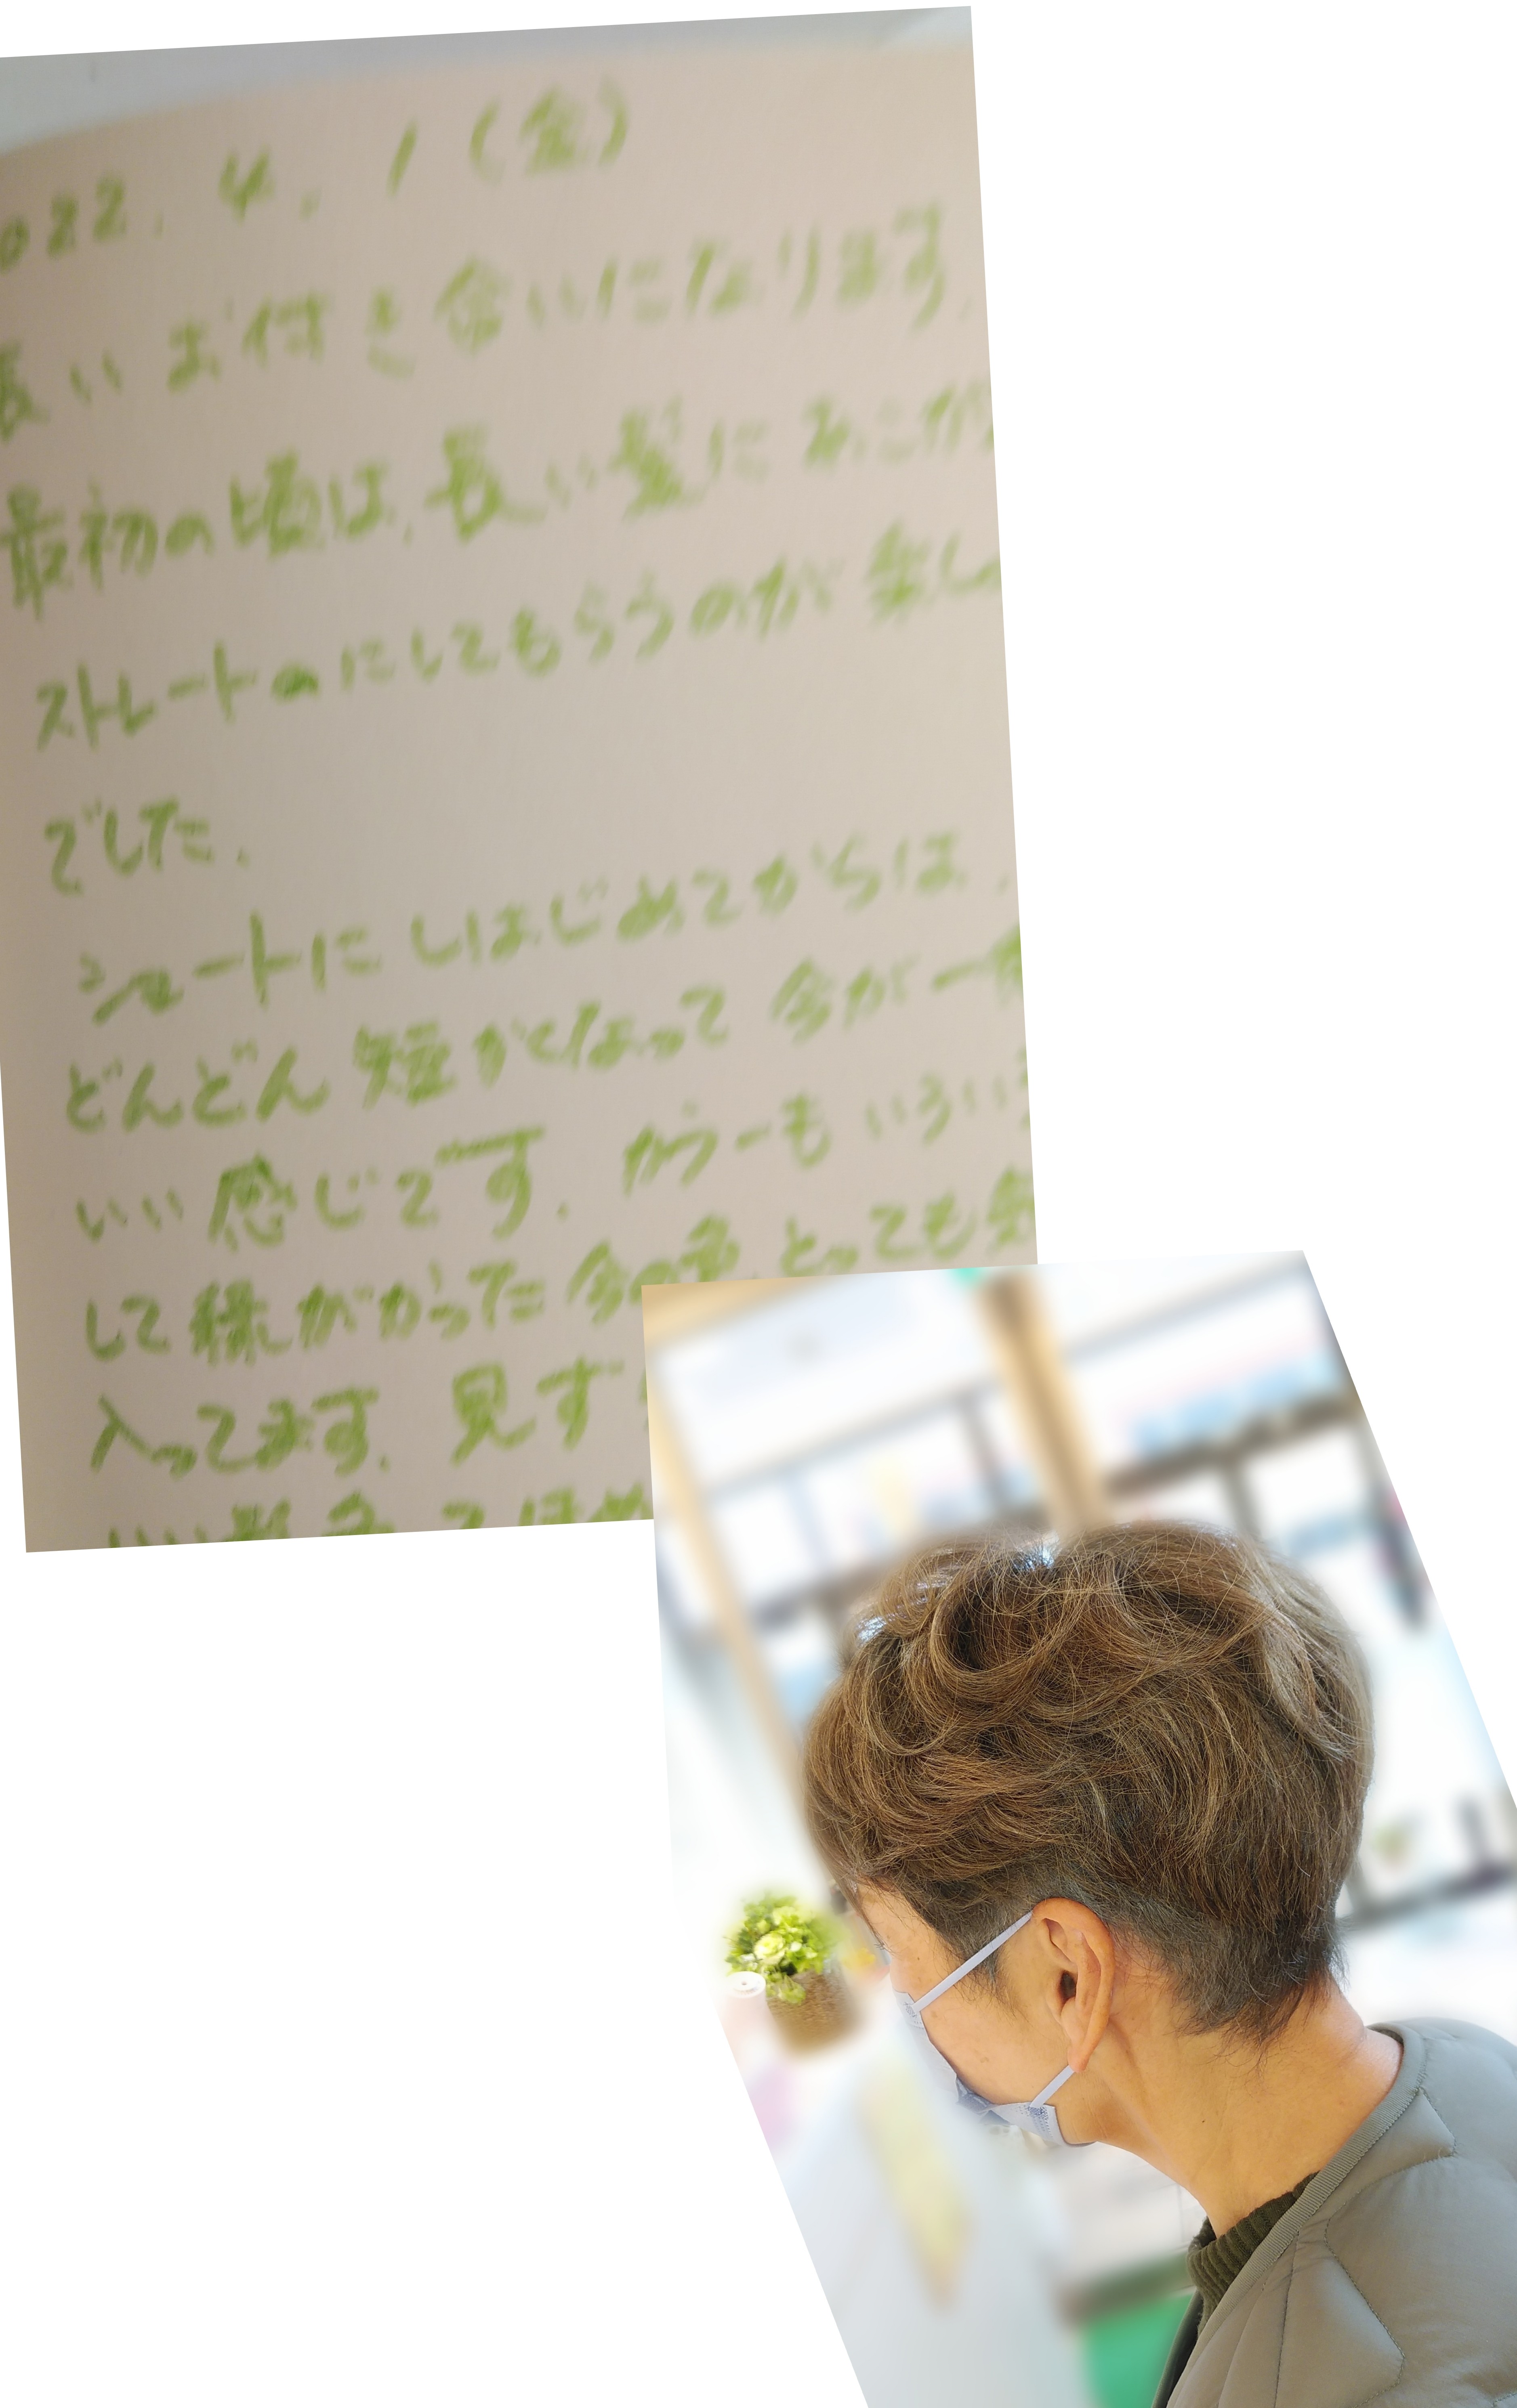 022. 4. 1 (金)
長いお付き合いになります。
最初の頃は、長い髪にあこが
ストレートのにしてもらうのが楽し
でした。
ショートにしはじめてからは、
どんどん短かくなって今が一
いい感じです。カラーもいろい
して緑がかった今の色、とっても気
入ってます。見ず